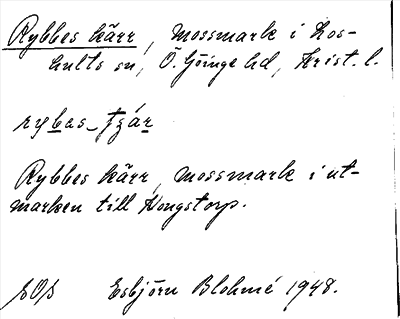 Rybbes kärr, mossmark i Los-
hults sn, Ö. Göinge hd, Krist. l.
rybas-tzár
Rybbes kärr, mossmark i ut-
marken till Kongstorp.
Esbjörn Blohmé 1948.